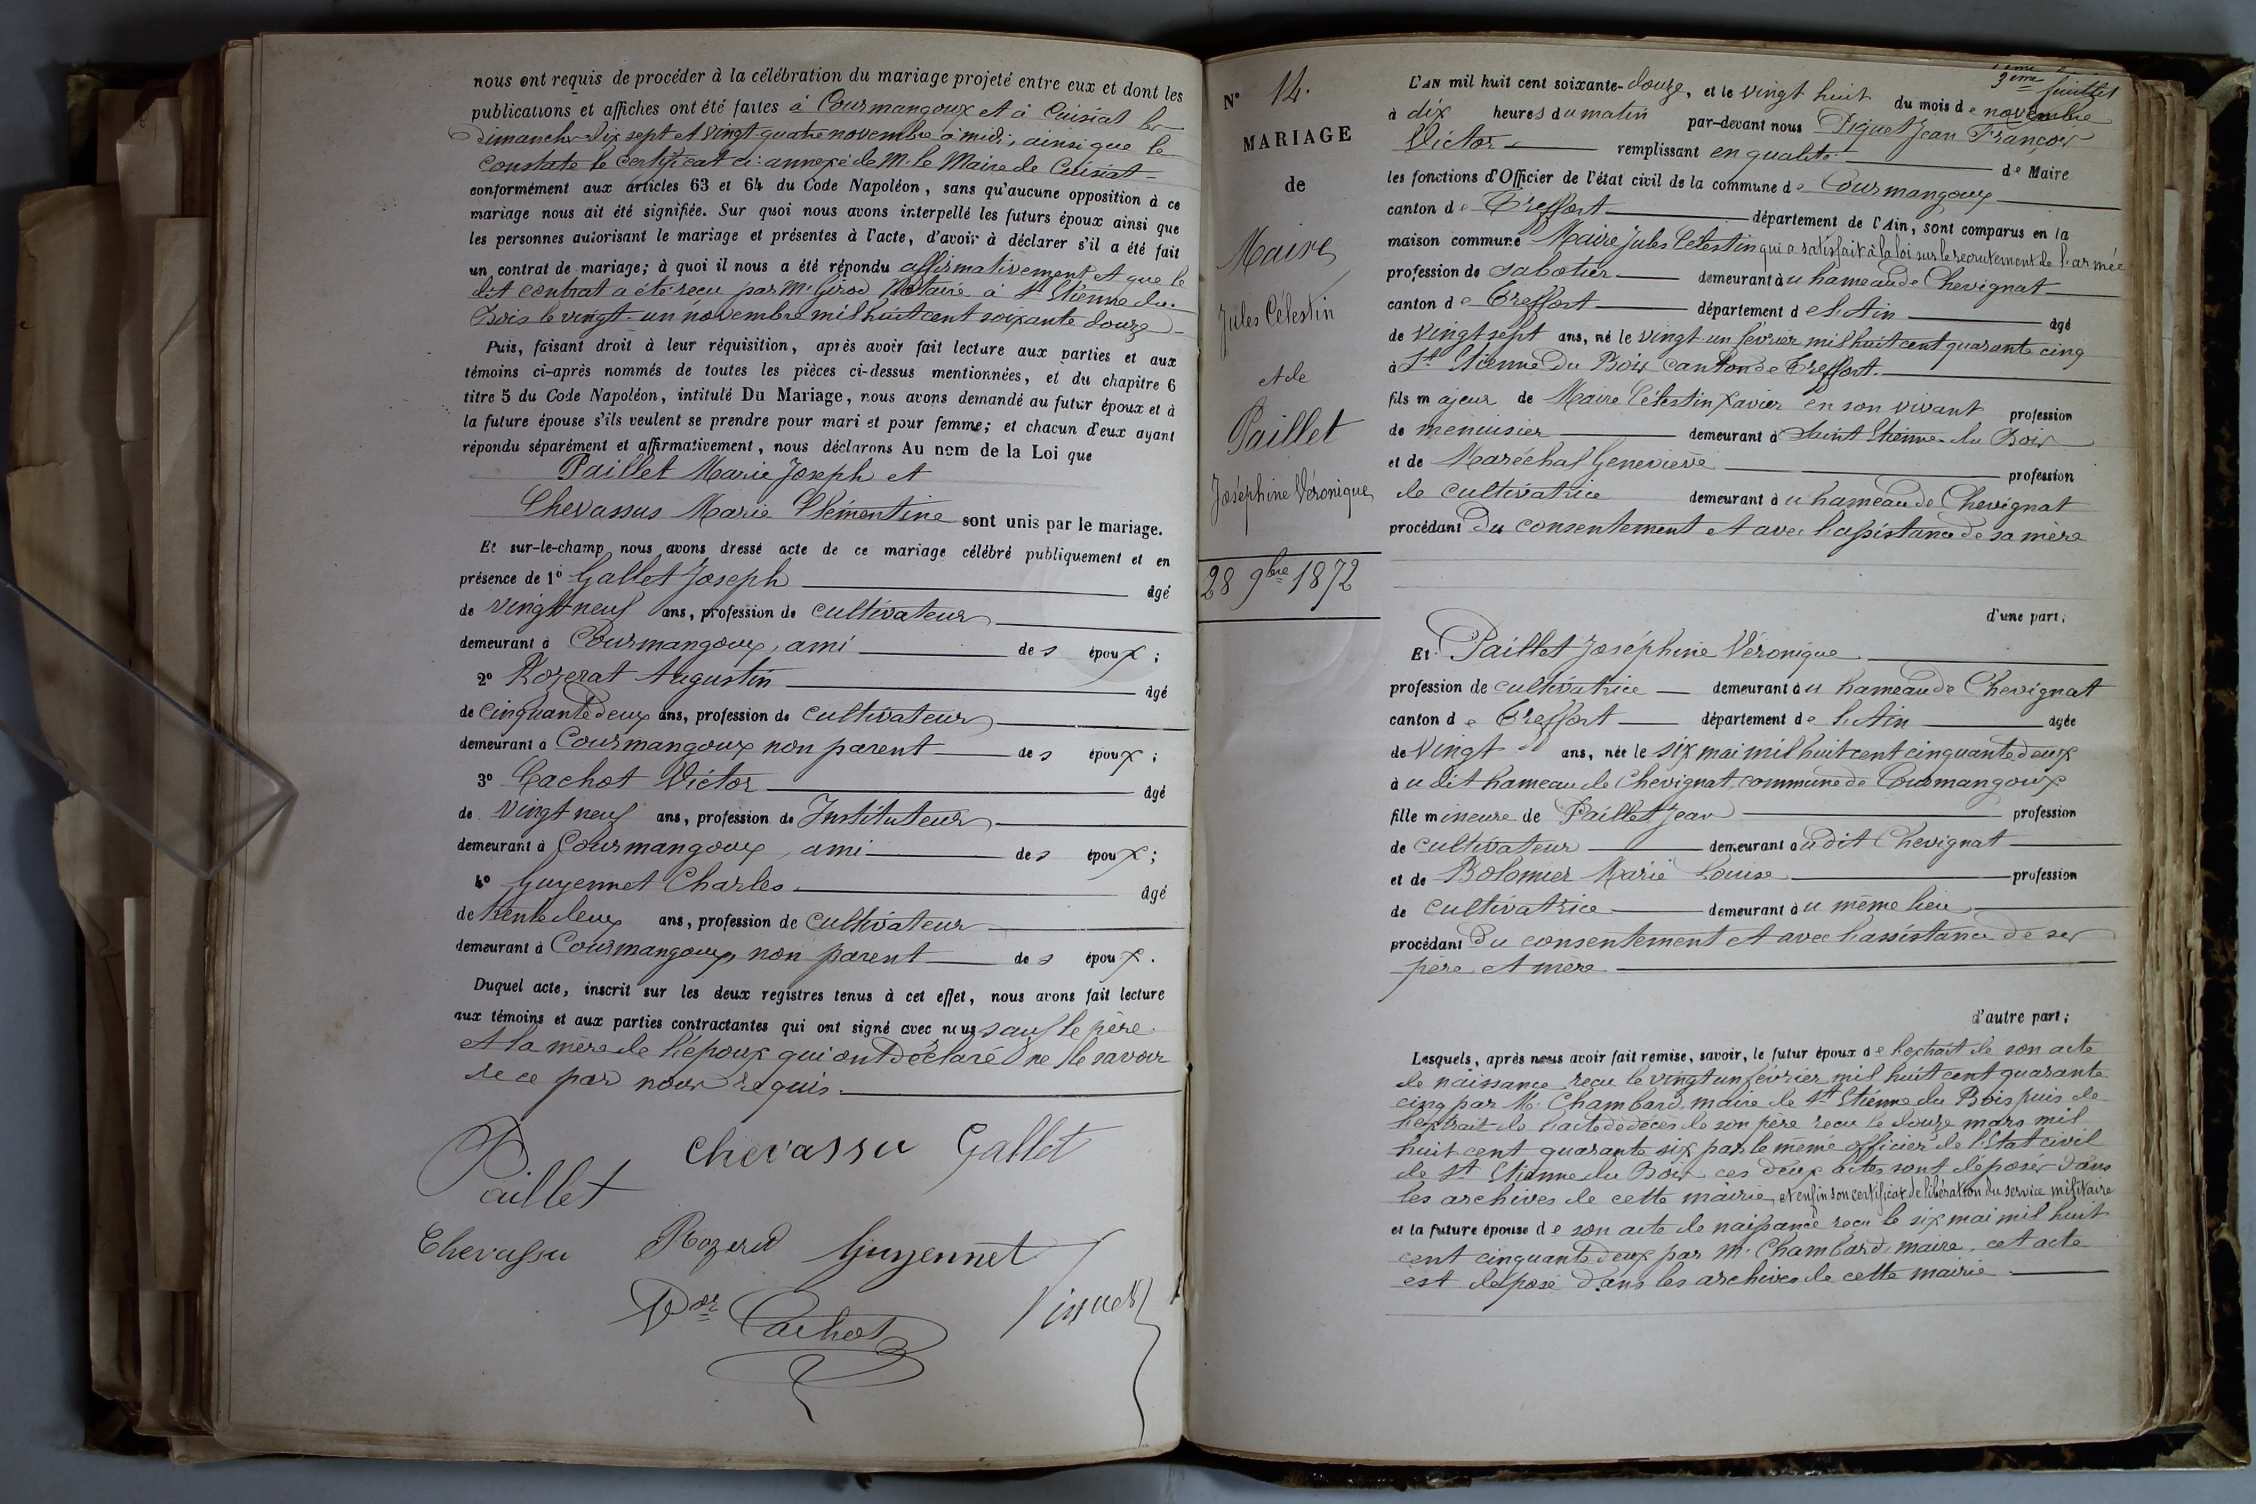 nous ont requis de procéder à la célébration du mariage projeté entre eux et dont les
publications et affiches ont été faites à Courmangoux et à Cuisiat les
dimanches dix sept et vingt quatre novembre à midi, ainsi que le
constate le certificat ci-annexé de M. le Maire de Cuisiat
conformément aux articles 63 et 64 du Code Napoléon, sans qu'aucune opposition à ce
mariage nous ait été signifiée. Sur quoi nous avons interpellé les futurs époux ainsi que
les personnes autorisant le mariage et présentes à l'acte, d'avoir à déclarer s'il a été fait
un contrat de mariage; à quoi il nous a été répondu affirmativement et que le
dit contrat a été recu par Mr Girod Notaire à St Etienne du
Bois le vingt-un novembre mil huit cent soixante douze
Puis, faisant droit à leur réquisition, après avoir fait lecture aux parties et aux
témoins ci-après nommés de toutes les pièces ci-dessus mentionnées, et du chapitre 6
titre 5 du Code Napoléon, intitulé Du Mariage, nous avons demandé au futur époux et à
la future épouse s'ils veulent se prendre pour mari et pour femme; et chacun d'eux ayant
répondu séparément et affirmativement, nous déclarons Au nom de la Loi que
Paillet Marie Joseph et
Chevassus Marie Clémentine sont unis par le mariage.
Et sur-le-champ nous avons dressé acte de ce mariage célébré publiquement et en
présence de 1° Gallet Joseph âgé
de vingt neuf ans, profession de cultivateur
demeurant à Courmangoux, ami des époux;
2° Rozerat Augustin âgé
de cinquante deux ans, profession de cultivateur
demeurant à Courmangoux non parent des époux;
3° Cachot Victor âgé
de vingt neuf ans, profession de Instituteur
demeurant à Courmangoux, ami des époux;
4° Guyennet Charles âgé
de trente deux ans, profession de cultivateur
demeurant à Courmangoux, non parent des époux.
Duquel acte, inscrit sur les deux registres tenus à cet effet, nous avons fait lecture
aux témoins et aux parties contractantes qui ont signé avec nous sauf le père
et la mère de l'époux qui ont déclaré ne le savoir
de ce par nous requis.
Paillet chevassu Gallet
Chevassu Rozerat Guyennet
Vor Cachot Piquet
9eme feuillet
N° 14.
MARIAGE
de
Maire
Jules Célestin
et de
Paillet
Joséphine Véronique
28 9bre 1872
L'AN mil huit cent soixante-douze, et le vingt huit du mois de novembre
à dix heures du matin par-devant nous Piquet Jean François
Victor remplissant en qualité de Maire
les fonctions d'Officier de l'état civil de la commune de Courmangoux
canton de Treffort département de l'Ain, sont comparus en la
maison commune Maire Jules Célestin qui a satisfait à la loi sur le recrutement de l'armée
profession de sabotier demeurant au hameau de Chevignat
canton de Treffort département de l'Ain âgé
de vingt sept ans, né le vingt-un février mil huit cent quarante cinq
à St Etienne Du Bois canton de Treffort.
fils majeur de Maire Célestin Xavier en son vivant profession
de menuisier demeurant à Saint Etienne-du Bois
et de Maréchal Geneviève profession
de cultivatrice demeurant au hameau de Chevignat
procédant du consentement et avec l'assistance de sa mère
d'une part;
Et Paillet Joséphine Véronique
profession de cultivatrice demeurant au hameau de Chevignat
canton de Treffort département de l'Ain âgée
de Vingt ans, née le six mai mil huit cent cinquante deux
à u dit hameau de Chevignat commune de Courmangoux
fille mineure de Paillet Jean profession
de cultivateur demeurant audit Chevignat
et de Bolomier Marie Louise profession
de cultivatrice demeurant au même lieu
procédant du consentement et avec l'assistance de ses
père et mère
d'autre part;
Lesquels, après nous avoir fait remise, savoir, le futur époux de l'extrait de son acte
de naissance recu le vingt un février mil huit cent quarante
cinq par M. Chambard maire de St Etienne du Bois puis de
l'extrait de l'acte de décès de son père recu le douze mars mil
huit cent quarante six par le même officier de l'Etat civil
de St Etienne du Bois ces deux actes sont déposés dans
les archives de cette mairie, et enfin son certificat de libération du service militaire
et la future épouse de son acte de naissance recu le six mai mil huit
cent cinquante deux par M. Chambard, maire, cet acte
est déposé dans les archives de cette mairie